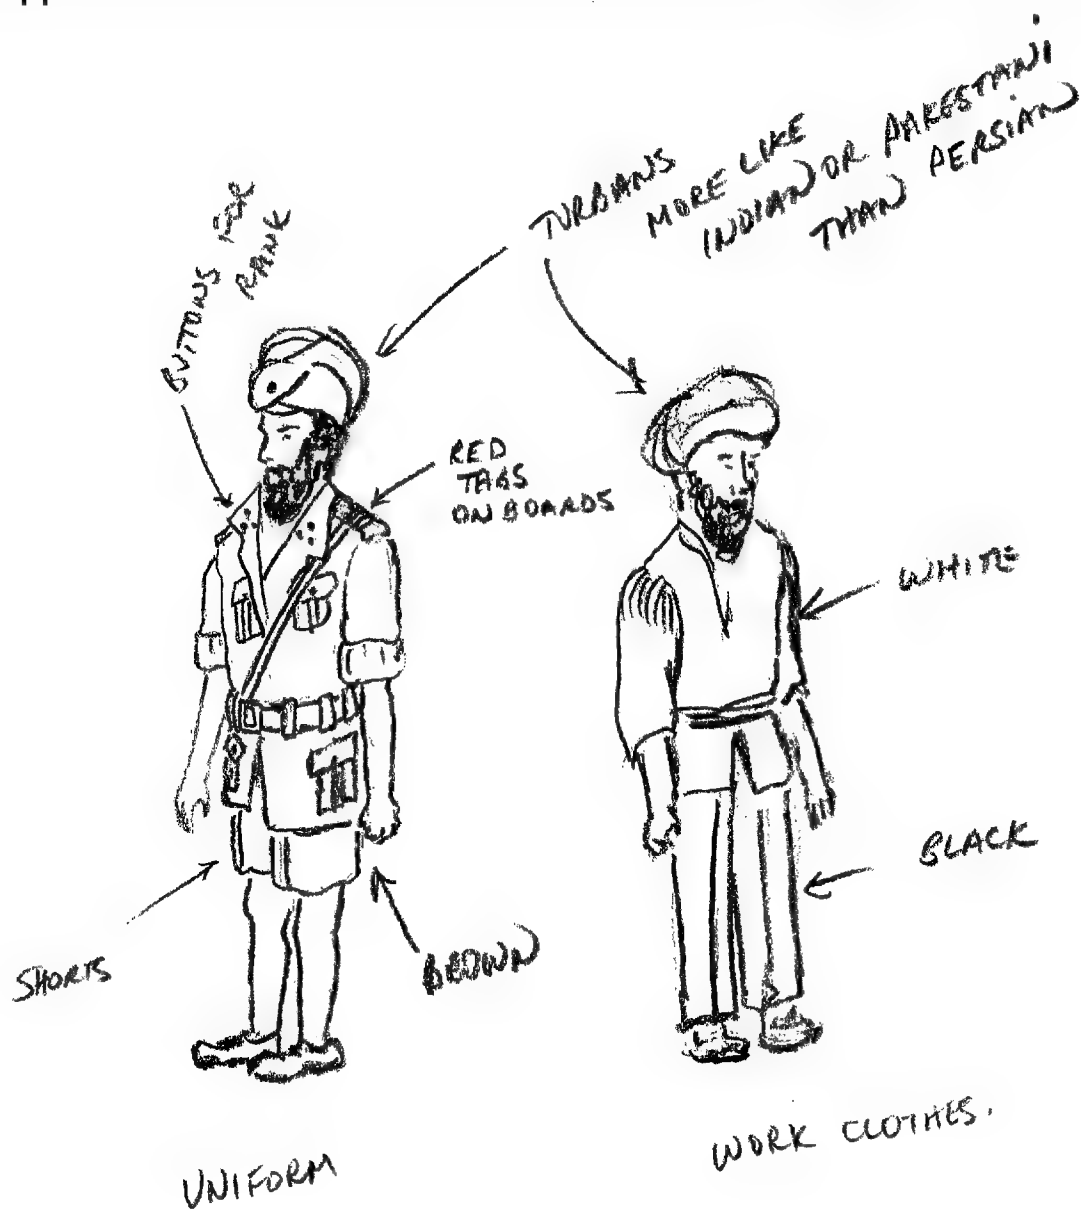 TURBANS
MORE LIKE
INDIAN OR PAKESTANI
THAN PERSIAN
BUTTONS FOR
RANK
RED
TABS
ON BOARDS
WHITE
BLACK
SHORTS
BROWN
UNIFORM
WORK CLOTHES.